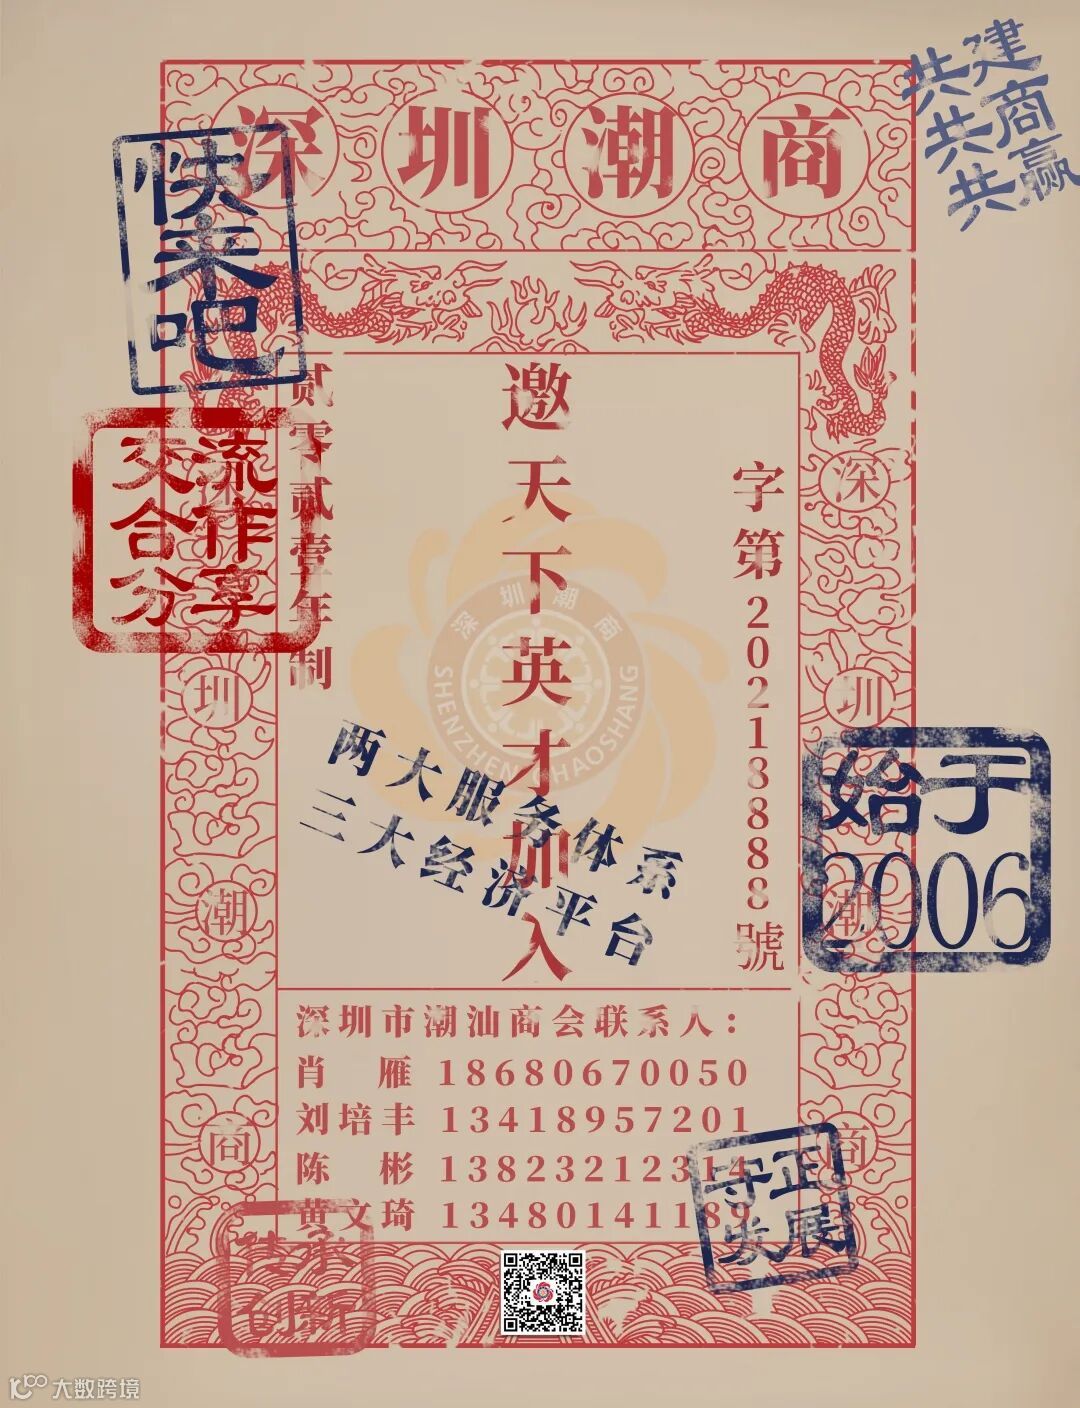 深圳潮商
共建
共商
共赢
快来吧
交流
合作
分享
贰零贰壹年制
邀天下英才加入
字第20218888號
深圳潮商
SHENZHEN CHAOSHANG
两大服务体系
三大经济平台
深圳潮商
深圳潮商
始于
2006
深圳市潮汕商会联系人：
肖 雁 18680670050
刘培丰 13418957201
陈 彬 13823212314
黄文琦 13480141189
守正
发展
传承
创新
大数跨境